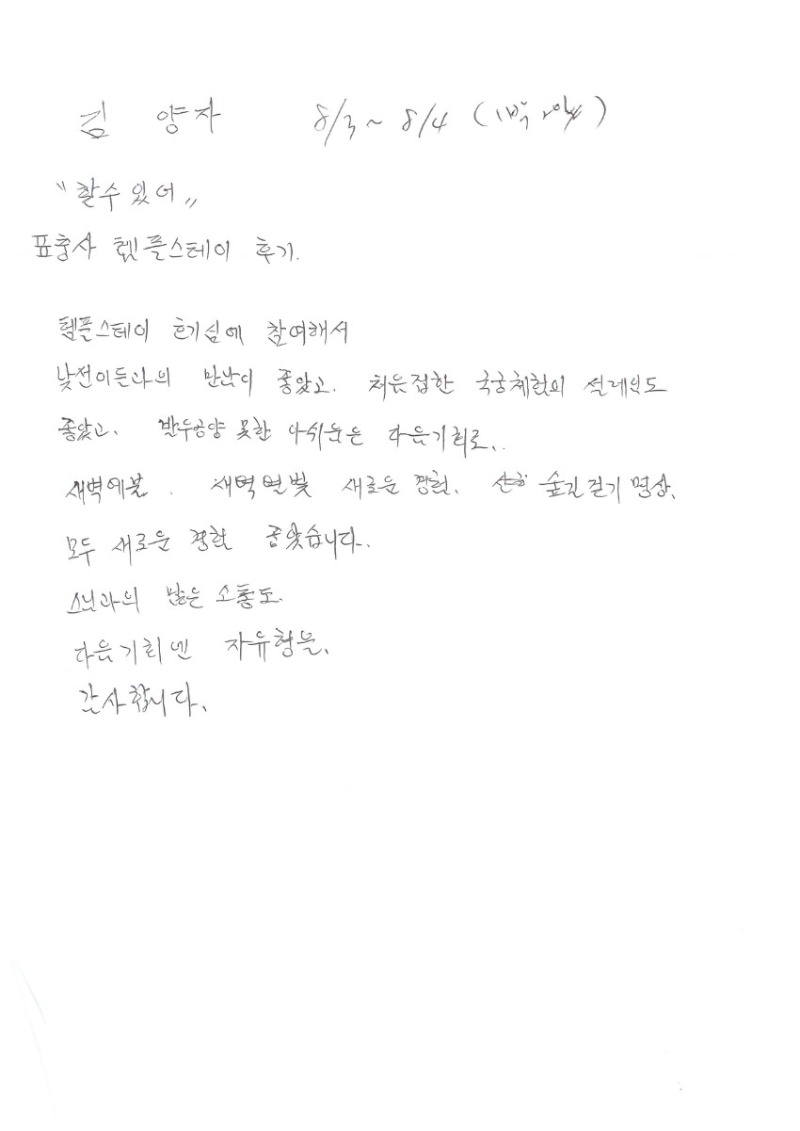 김 양자 8/3 ~ 8/4 (1박 2일)
"할수 있어"
표충사 템플스테이 후기.
템플스테이 호기심에 참여해서
낯선이들과의 만남이 좋았고. 처음접한 국궁체험의 설레임도
좋았고. 발우공양 못한 아쉬움은 다음기회로..
새벽예불. 새벽별빛 새로운 경험. 숲길걷기 명상.
모두 새로운 경험 좋았습니다.
스님과의 많은 소통도.
다음기회엔 자유형을.
감사합니다.